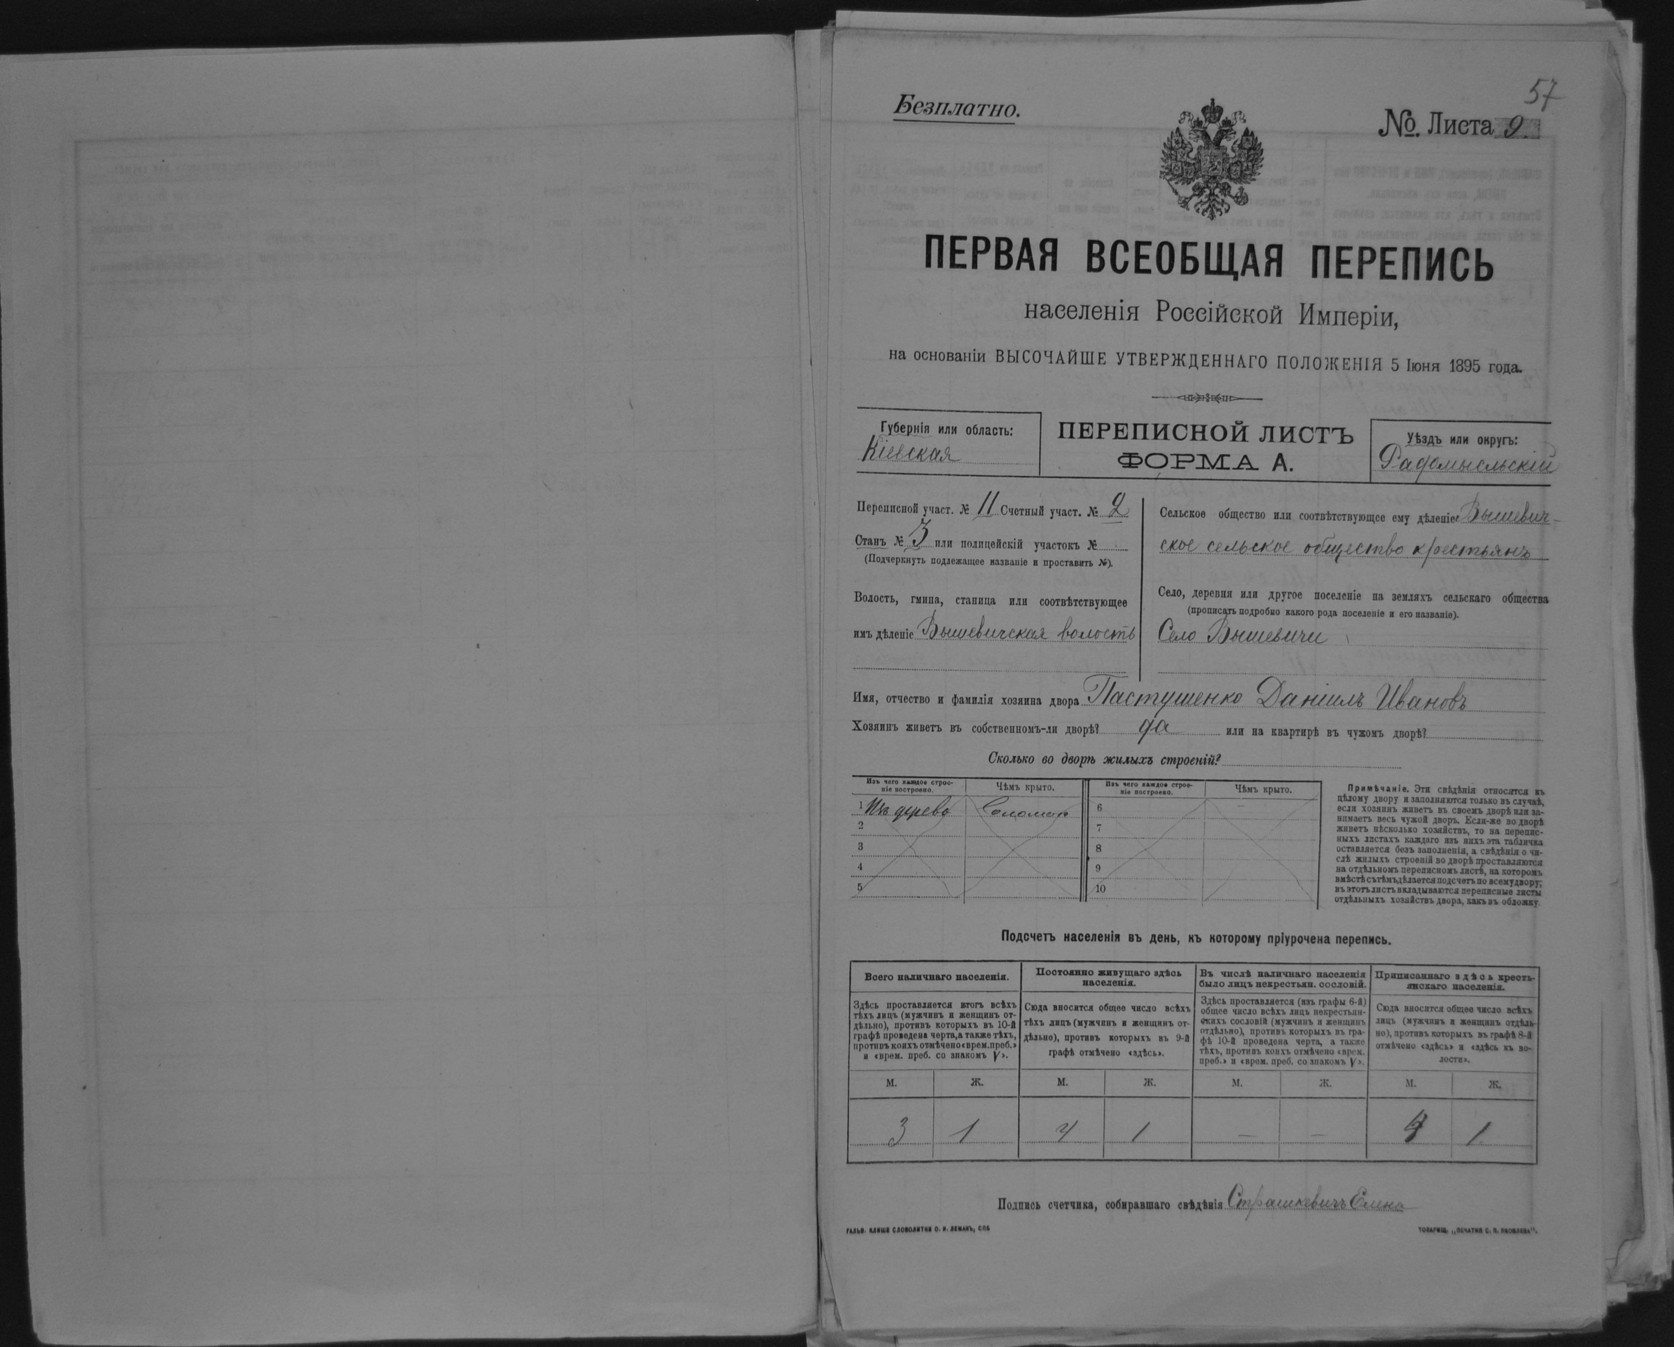 57
Безплатно.
№. Листа 9.
ПЕРВАЯ ВСЕОБЩАЯ ПЕРЕПИСЬ
населенія Россійской Имперіи,
на основаніи ВЫСОЧАЙШЕ УТВЕРЖДЕННАГО ПОЛОЖЕНІЯ 5 Іюня 1895 года.
Губернія или область:
Кіевская
ПЕРЕПИСНОЙ ЛИСТЪ
ФОРМА А.
Уѣздъ или округъ:
Радомысльскій
Переписной участ. № 11 Счетный участ. № 2
Станъ № 3 или полицейскій участокъ №
(Подчеркнуть подлежащее названіе и проставить №).
Волость, гмина, станица или соотвѣтствующее
имъ дѣленіе Вышевичская волость
Сельское общество или соотвѣтствующее ему дѣленіе Вышевич-
ское сельское общество крестьянъ
Село, деревня или другое поселеніе на земляхъ сельскаго общества
(прописать подробно какого рода поселеніе и его названіе).
Село Вышевичи
Имя, отчество и фамилія хозяина двора Пастушенко Даніилъ Ивановъ
Хозяинъ живетъ въ собственномъ-ли дворѣ? да или на квартирѣ въ чужомъ дворѣ?
Сколько во дворѣ жилыхъ строеній?
Изъ чего каждое строе-
ніе построено.
Чѣмъ крыто.
Изъ чего каждое строе-
ніе построено.
Чѣмъ крыто.
1 Изъ дерева Соломой
2
3
4
5
6
7
8
9
10
Примѣчаніе. Эти свѣдѣнія относятся къ
цѣлому двору и заполняются только въ случаѣ,
если хозяинъ живетъ въ своемъ дворѣ или за-
нимаетъ весь чужой дворъ. Если-же во дворѣ
живетъ нѣсколько хозяйствъ, то на перепис-
ныхъ листахъ каждаго изъ нихъ эта табличка
оставляется безъ заполненія, а свѣдѣнія о чи-
слѣ жилыхъ строеній во дворѣ проставляются
на отдѣльномъ переписномъ листѣ, на которомъ
вмѣстѣ съ тѣмъ дѣлается подсчетъ по всему двору;
въ этотъ листъ вкладываются переписные листы
отдѣльныхъ хозяйствъ двора, какъ въ обложку.
Подсчетъ населенія въ день, къ которому пріурочена перепись.
Всего наличнаго населенія.
Здѣсь проставляется итогъ всѣхъ
тѣхъ лицъ (мужчинъ и женщинъ от-
дѣльно), противъ которыхъ въ 10-й
графѣ проведена черта, а также тѣхъ,
противъ коихъ отмѣчено «врем. преб.»
и «врем. преб. со знакомъ V».
Постоянно живущаго здѣсь
населенія.
Сюда вносится общее число всѣхъ
тѣхъ лицъ (мужчинъ и женщинъ от-
дѣльно), противъ которыхъ въ 9-й
графѣ отмѣчено «здѣсь».
Въ числѣ наличнаго населенія
было лицъ некрестьян. сословій.
Здѣсь проставляется (изъ графы 6-й)
общее число всѣхъ лицъ некрестьян-
скихъ сословій (мужчинъ и женщинъ
отдѣльно), противъ которыхъ въ гра-
фѣ 10-й проведена черта, а также
тѣхъ, противъ коихъ отмѣчено «врем.
преб.» и «врем. преб. со знакомъ V».
Приписаннаго здѣсь кресть-
янскаго населенія.
Сюда вносится общее число всѣхъ
лицъ (мужчинъ и женщинъ отдѣль-
но), противъ которыхъ въ графѣ 8-й
отмѣчено «здѣсь» и «здѣсь къ во-
лости».
М. Ж. М. Ж. М. Ж. М. Ж.
3 1 4 1 — — 4 1
Подпись счетчика, собиравшаго свѣдѣнія Страшкевичъ
ГАЛЬВ. КЛИШЕ СЛОВОЛИТНИ О. И. ЛЕМАНЪ, СПБ
ТОВАРИЩ. „ПЕЧАТНЯ С. П. ЯКОВЛЕВА".